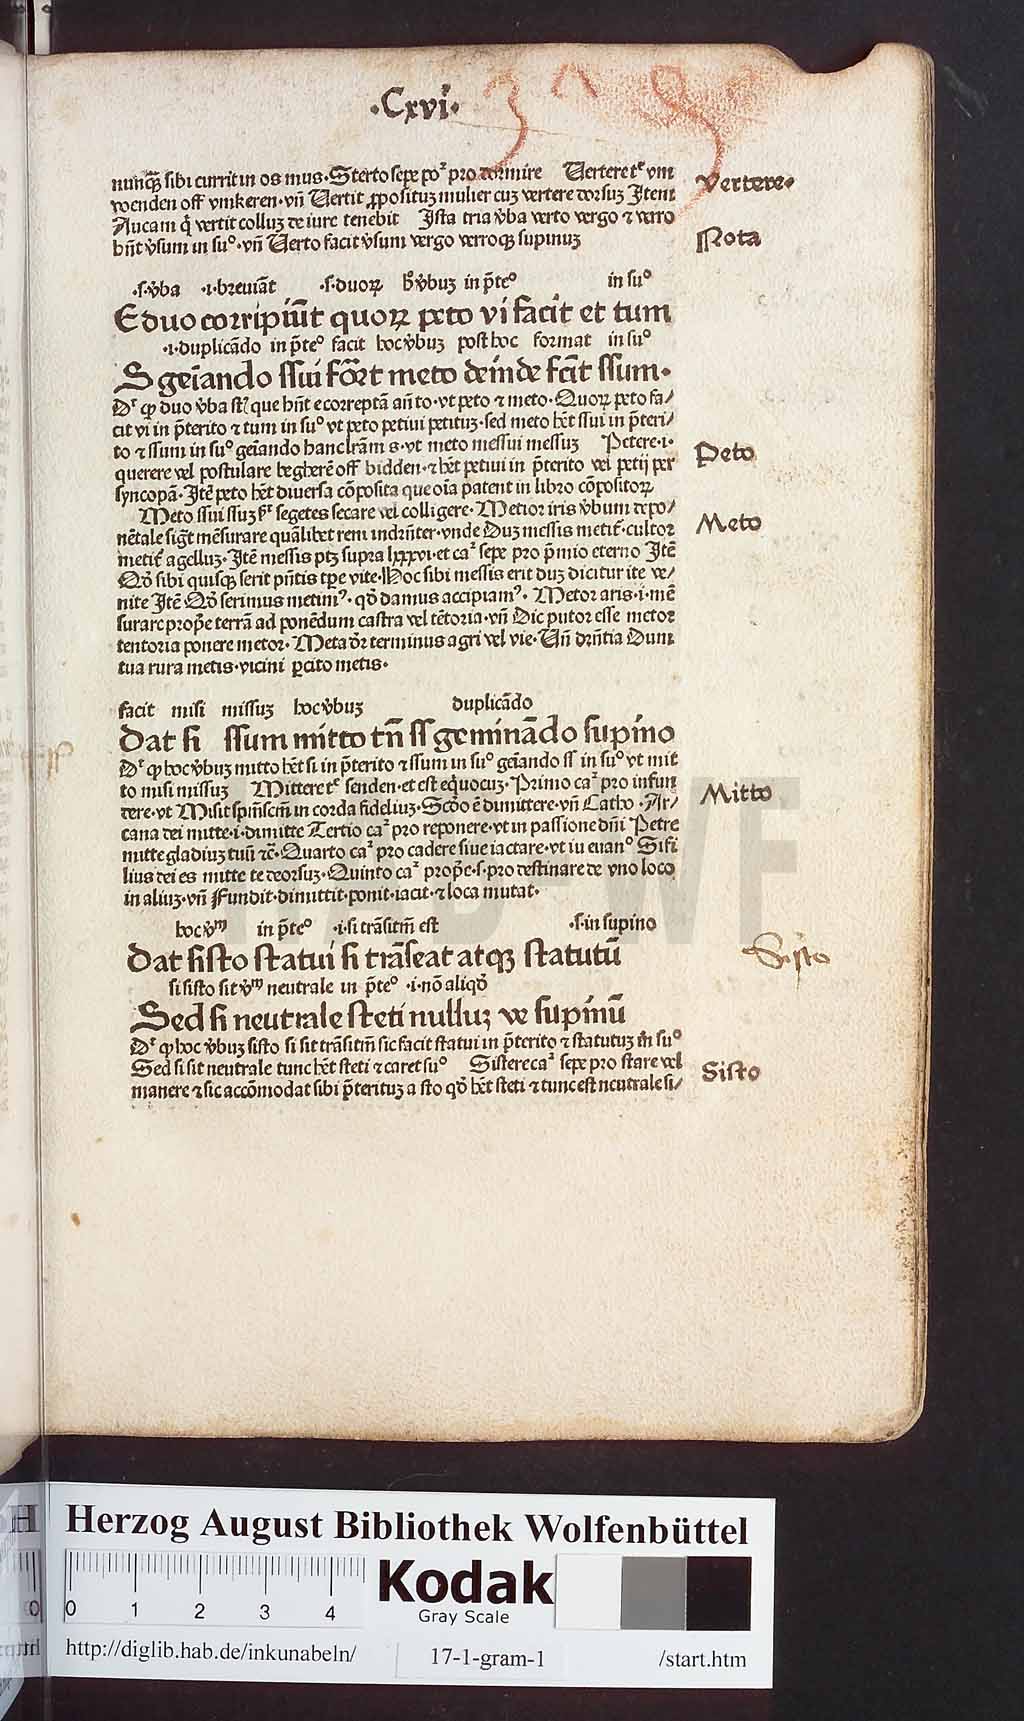 ·Cxvi·
nunq̄ꝫ sibi currit in os mus·Sterto sepe po² pro dormire Uertere tͤ vm
wenden off vmkeren·vn̄ Uertit ꝓpositum mulier cuꝫ vertere dorsuꝫ Item
Aucam q̇ vertit colluꝫ de iure tenebit Ista tria v̓ba verto vergo ⁊ verro
hn̄t v̓sum in suº·vn̄ Uerto facit v̓sum vergo verroqꝫ supinuꝫ
Vertere·
Nota
·s·v̓ba ·i·breuiāt ·s·duoꝝ h̓ v̓buꝫ in p̄teº in suº
E duo corripiūt quoꝝ peto vi facit et tum
·i·duplicādo in p̄teº facit hoc v̓buꝫ post hoc format in suº
S geīando ssui fōr̄t meto deinde fc̄it ssum·
Dʳ ꝙ duo v̓ba st̄ que hn̄t e correptā an̄ to·vt peto ⁊ meto·Quoꝝ peto fa/
cit vi in p̄terito ⁊ tum in suº vt peto petiui petituꝫ·sed meto hꝫt ssui in p̄teri/
to ⁊ ssum in suº geīando hanc lr̄am s·vt meto messui messuꝫ Petere·i·
querere vel postulare begherē off bidden·⁊ hꝫt petiui in p̄terito vel petij per
syncopā·Itē peto hꝫt diuersa cōposita que oīa patent in libro cōpositoꝝ
Peto
Meto ssui ssuꝫ segetes secare vel colligere·Metior iris v̓bum depo/
nētale sigt̄ mēsurare quālibet rem indrn̄ter·vnde Duꝫ messis metit᷑·cultor
metit᷑ agelluꝫ·Itē messis ptꝫ supra lxxxvi·et ca² sepe pro p̄mio eterno Itē
Qð sibi quisqꝫ serit pn̄tis tpe vite·Hoc sibi messis erit duꝫ dicitur ite ve/
nite Itē Qð serimus metim⁹·qð damus accipiam⁹·Metor aris·i·mē
surare prope terrā ad ponēdum castra vel tētoria·vn̄ Dic putor esse metor
tentoria ponere metor·Meta dr̄ terminus agri vel vie·Un̄ drn̄tia Dum
tua rura metis·vicini ꝑcito metis·
Meto
facit misi missuꝫ hoc v̓buꝫ duplicādo
Dat si ssum mitto tn̄ ss geminādo supino
Dʳ ꝙ hoc v̓buꝫ mitto hꝫt si in p̄terito ⁊ ssum in suº geīando ss in suº vt mit
to misi missuꝫ Mittere tͤ senden·et est equocuꝫ·Primo ca² pro infun
dere·vt Misit spm̄ scm̄ in corda fideliuꝫ·Scd̄o ē dimittere·vn̄ Catho·Ar/
cana dei mitte·i·dimitte Tertio ca² pro reponere·vt in passione dn̄i Petre
mitte gladiuꝫ tuū ⁊c̄·Quarto ca² pro cadere siue iactare·vt iu euanº Si fi
lius dei es mitte te deorsuꝫ·Quinto ca² prop̄e·s·pro destinare de vno loco
in aliuꝫ·vn̄ Fundit·dimittit·ponit·iacit·⁊ loca mutat·
Mitto
hoc v̓ᵐ in p̄teº ·i·si trāsitm̄ est ·s·in supino
Dat sisto statui si trāseat atqꝫ statutū
Sisto
si sisto sit v̓ᵐ neutrale in p̄teº ·i·nō aliqð
Sed si neutrale steti nulluꝫ ve supinū
Dʳ ꝙ hoc v̓buꝫ sisto si sit trāsitm̄ sic facit statui in p̄terito ⁊ statutuꝫ in suº
Sed si sit neutrale tunc hꝫt steti ⁊ caret suº Sistere ca² sepe pro stare vel
manere ⁊ sic accōmodat sibi p̄terituꝫ a sto qð hꝫt steti ⁊ tunc est neutrale si/
Sisto
Herzog August Bibliothek Wolfenbüttel
0 1 2 3 4
Kodak
Gray Scale
http://diglib.hab.de/inkunabeln/ 17-1-gram-1 /start.htm